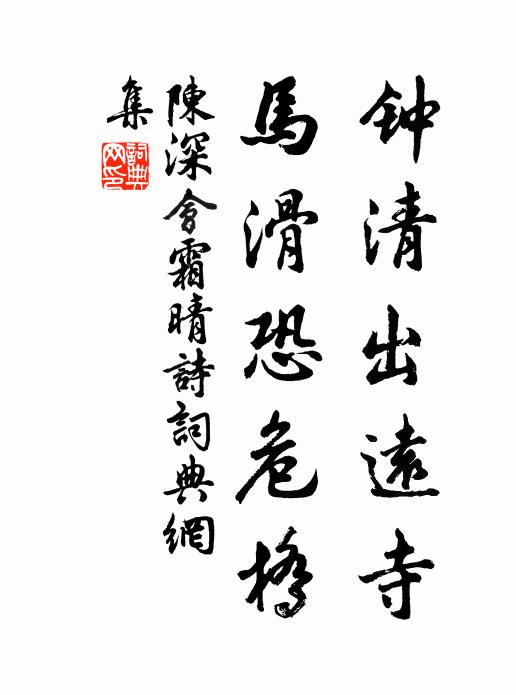 钟清出遠寺
馬滑恐危橋
陳深會霜晴詩詞典網
集
詞典
网印